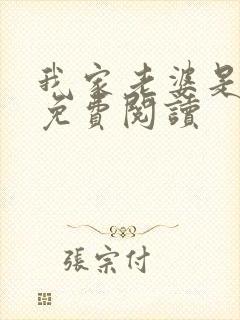 我家老婆是
免費閱讀
張宗付